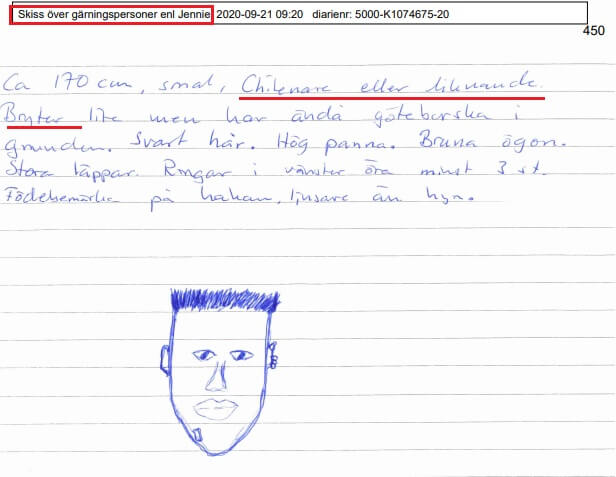 Skiss över gärningspersoner enl Jennie, 2020-09-21 09:20 diarienr: 5000-K1074675-20
450
Ca 170 cm, smal, Chilenare eller liknande.
Bryter lite men har ändå göteborska i
grunden. Svart hår. Hög panna. Bruna ögon.
Stora läppar. Ringar i vänster öra minst 3 st.
Födelsemärke på hakan, ljusare än hyn.